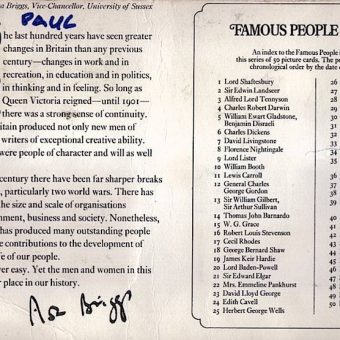 sa Briggs, Vice-Chancellor, University of Sussex
PAUL
he last hundred years have seen greater
changes in Britain than any previous
century—changes in work and in
recreation, in education and in politics,
in thinking and in feeling. So long as
Queen Victoria reigned—until 1901—
there was a strong sense of continuity.
itain produced not only new men of
writers of exceptional creative ability.
were people of character and will as well
century there have been far sharper breaks
, particularly two world wars. There has
the size and scale of organisations
nment, business and society. Nonetheless,
has produced many outstanding people
e contributions to the development of
fe of our people.
ver easy. Yet the men and women in this
r place in our history.
Asa Briggs
FAMOUS PEOPLE
An index to the Famous People
this series of 50 picture cards. The po
chronological order by the date o
1 Lord Shaftesbury
2 Sir Edwin Landseer
3 Alfred Lord Tennyson
4 Charles Robert Darwin
5 William Ewart Gladstone,
Benjamin Disraeli
6 Charles Dickens
7 David Livingstone
8 Florence Nightingale
9 Lord Lister
10 William Booth
11 Lewis Carroll
12 General Charles
George Gordon
13 Sir William Gilbert,
Sir Arthur Sullivan
14 Thomas John Barnardo
15 W. G. Grace
16 Robert Louis Stevenson
17 Cecil Rhodes
18 George Bernard Shaw
19 James Keir Hardie
20 Lord Baden-Powell
21 Sir Edward Elgar
22 Mrs. Emmeline Pankhurst
23 David Lloyd George
24 Edith Cavell
25 Herbert George Wells
26
27
28
29
30
31
32
33
34
35
36
37
38
39
40
41
42
43
44
45
46
47
48
49
50